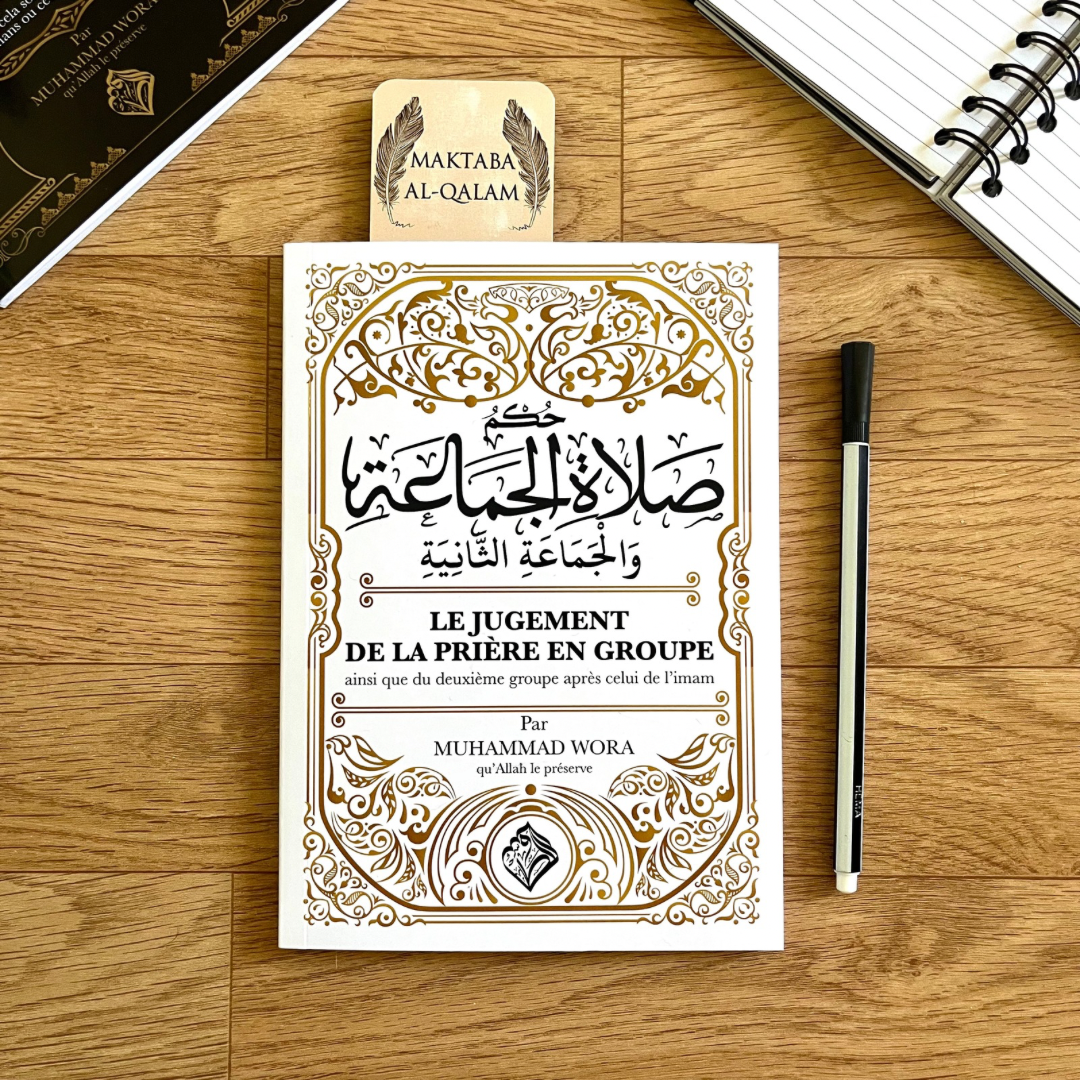 cela so
mans ou ce
Par
MUHAMMAD WORA
qu'Allah le préserve
MAKTABA
AL-QALAM
حُكْمُ
صَلَاةِ الجَمَاعَةِ
وَالْجَمَاعَةِ الثَّانِيَةِ
LE JUGEMENT
DE LA PRIÈRE EN GROUPE
ainsi que du deuxième groupe après celui de l'imam
Par
MUHAMMAD WORA
qu'Allah le préserve